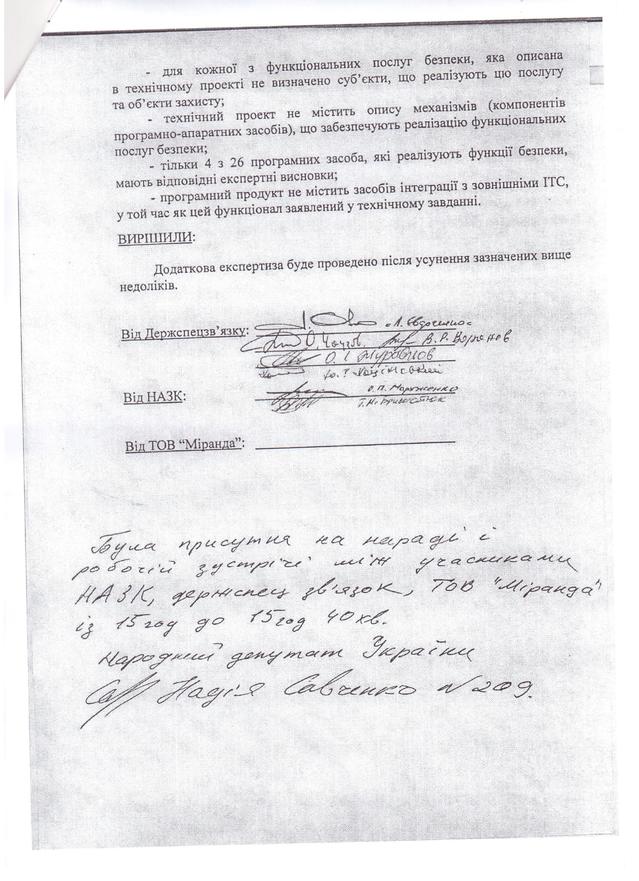 - для кожної з функціональних послуг безпеки, яка описана
в технічному проекті не визначено суб’єкти, що реалізують цю послугу
та об’єкти захисту;
- технічний проект не містить опису механізмів (компонентів
програмно-апаратних засобів), що забезпечують реалізацію функціональних
послуг безпеки;
- тільки 4 з 26 програмних засоба, які реалізують функції безпеки,
мають відповідні експертні висновки;
- програмний продукт не містить засобів інтеграції з зовнішніми ІТС,
у той час як цей функціонал заявлений у технічному завданні.
ВИРІШИЛИ:
Додаткова експертиза буде проведено після усунення зазначених вище
недоліків.
Від Держспецзв’язку:
Від НАЗК:
Від ТОВ “Міранда”:
Була присутня на нараді і
робочій зустрічі між учасниками
НАЗК, держспец зв'язок, ТОВ "Міранда"
із 15 год до 15 год 40 хв.
Народний депутат України
Надія Савченко N 209.